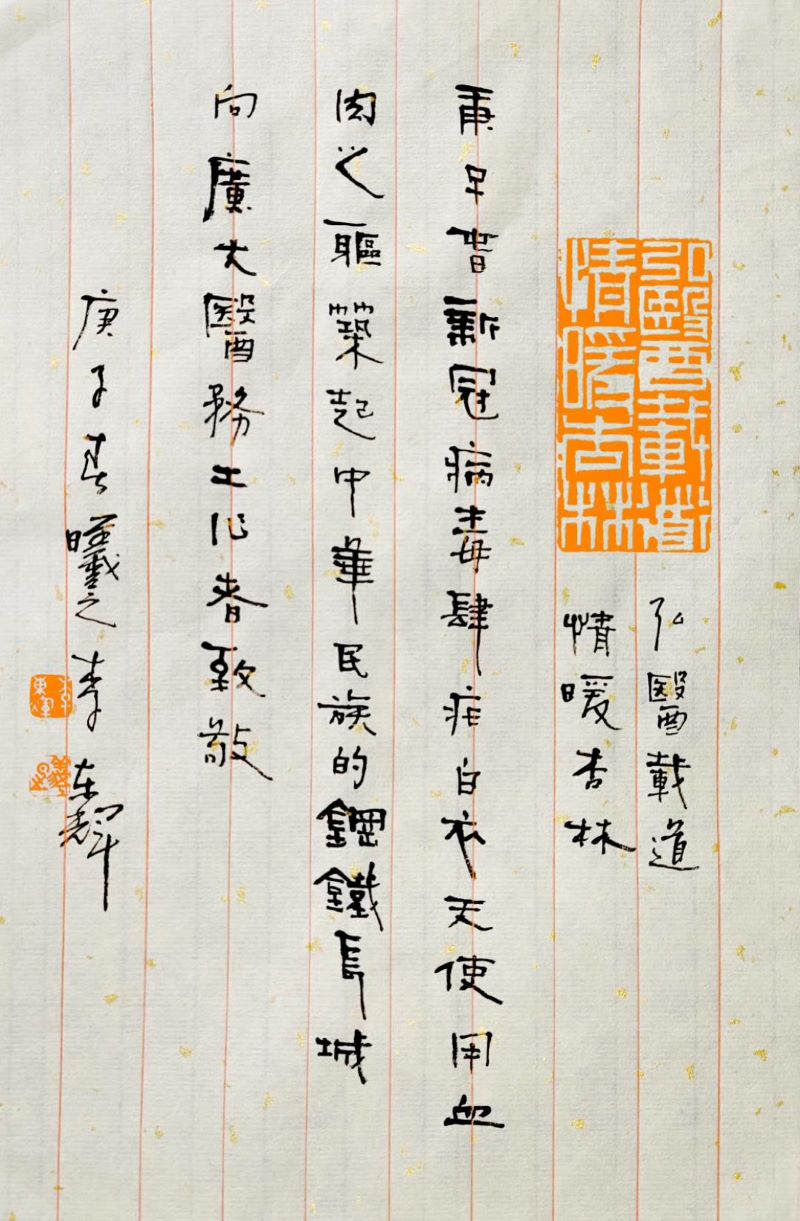 弘醫載道
情暖杏林
弘醫載道
情暖杏林
庚子旾新冠病毒肆疟白衣天使用血
肉之軀築起中華民族的鋼鐵長城
向廣大醫務工作者致敬
庚子春曦之李东輝